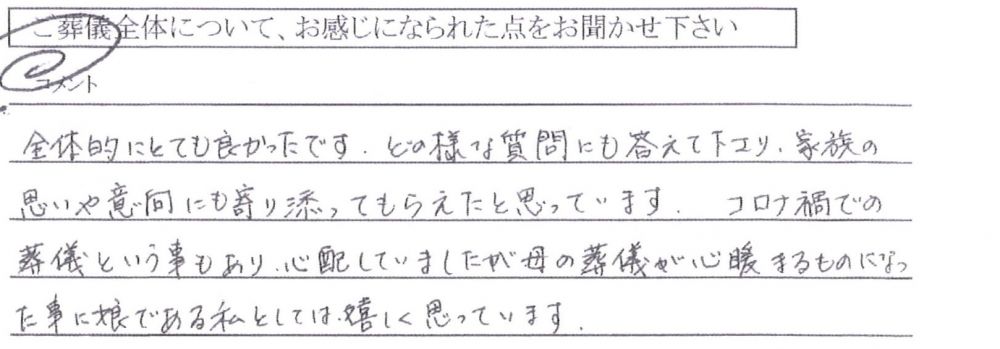 ご葬儀全体について、お感じになられた点をお聞かせ下さい
コメント
全体的にとても良かったです. どの様な質問にも答えて下エリ、家族の
思いや意向にも寄り添ってもらえたと思っています. コロナ禍での
葬儀という事もあり、心配していましたが母の葬儀が心暖まるものになっ
た事に娘である私としては、嬉しく思っています.